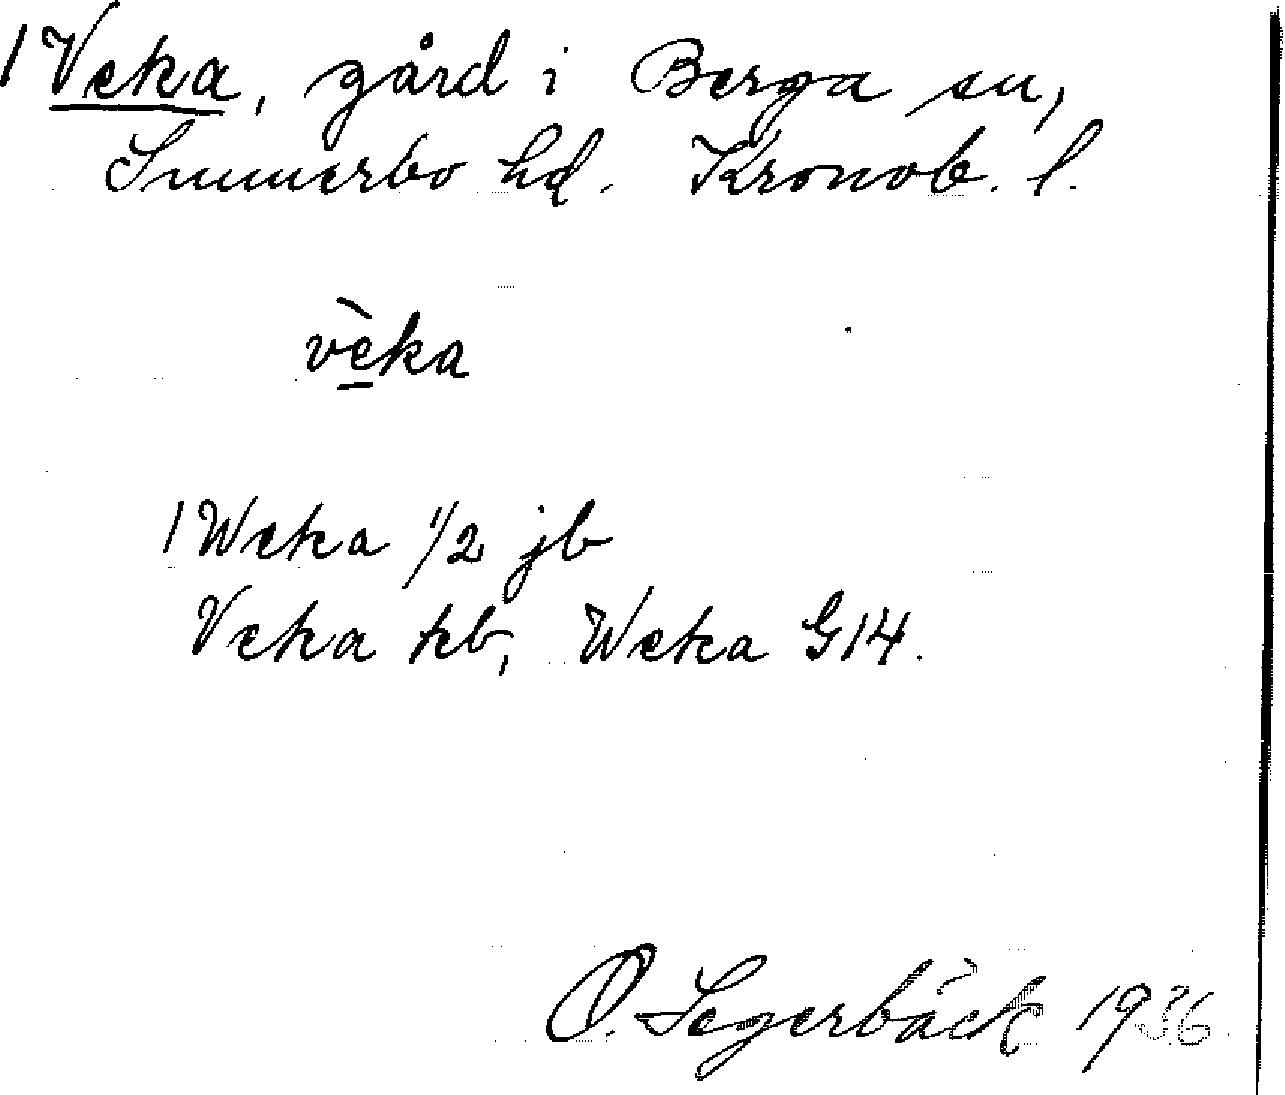 1 Veka, gård i Berga sn,
Sunnerbo hd. Kronob. l.
vèka
1 Weka 1/2 jb
Veka kb, Weka G14.
O. Segerbäck 1936